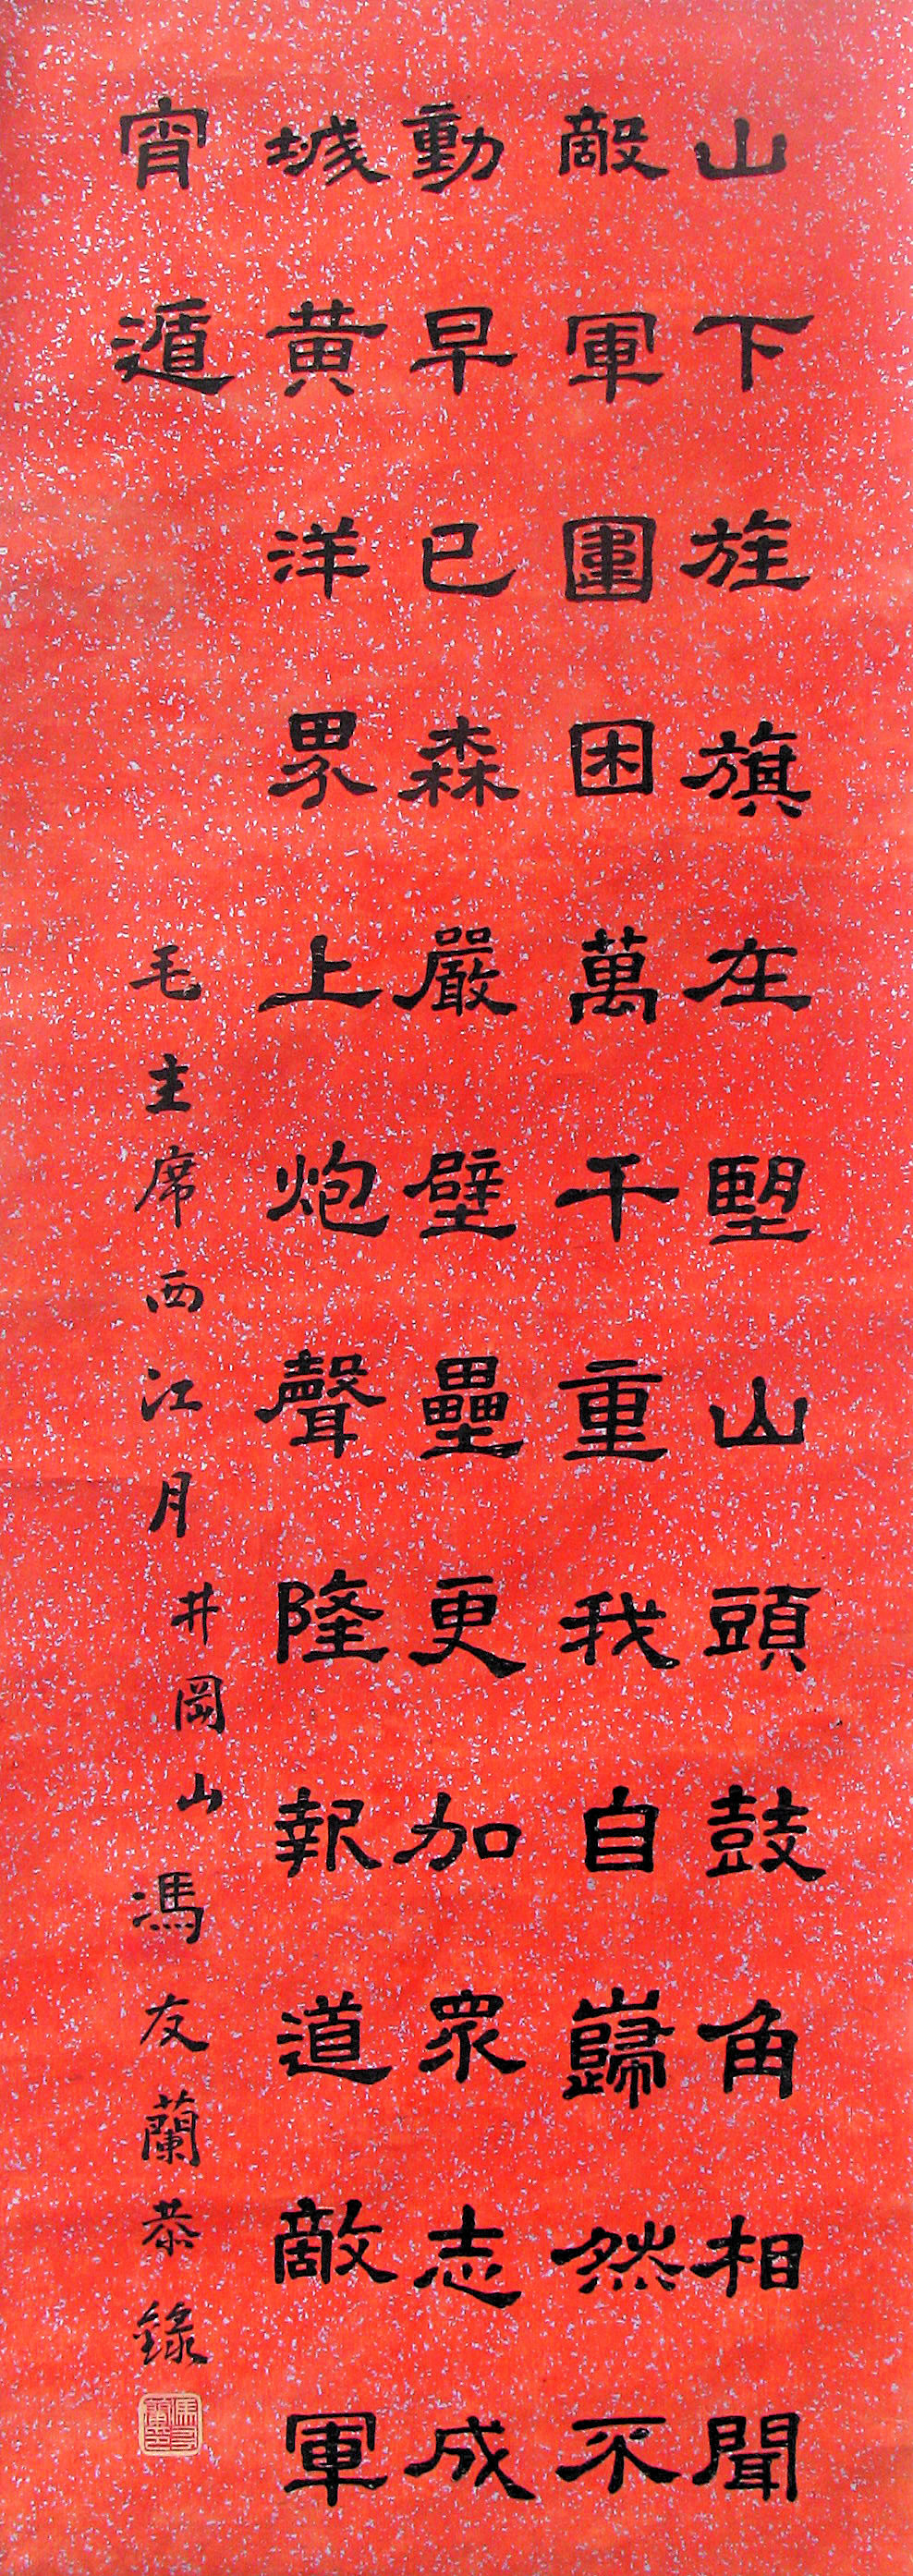 山下旌旗在朢山頭鼓角相聞
敵軍圍困萬千重我自巋然不
動早已森嚴壁壘更加眾志成
城黄洋界上炮聲隆報道敵軍
宵遁
毛主席西江月井岡山馮友蘭恭錄